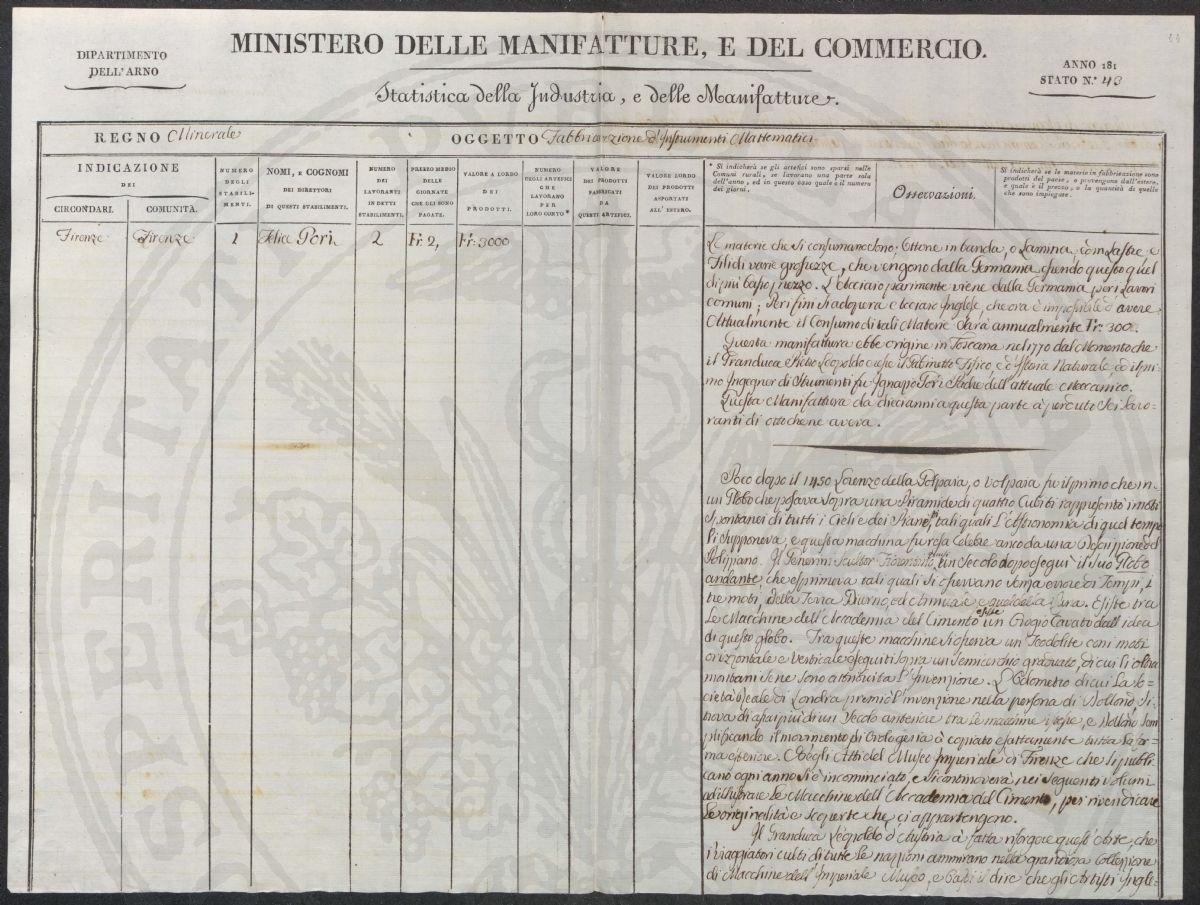 DIPARTIMENTO
DELL'ARNO
MINISTERO DELLE MANIFATTURE, E DEL COMMERCIO.
ANNO 181
STATO N.° 43
Statistica della Industria, e delle Manifatture.
REGNO Minerale
OGGETTO Fabbricazione d'Instrumenti Mattematici
INDICAZIONE
DEI
CIRCONDARI.
COMUNITÀ.
NUMERO
DEGLI
STABILI-
MENTI.
NOMI, E COGNOMI
DEI DIRETTORI
DI QUESTI STABILIMENTI.
NUMERO
DEI
LAVORANTI
IN DETTI
STABILIMENTI.
PREZZO MEDIO
DELLE
GIORNATE
CHE GLI SONO
PAGATE.
VALORE A LORDO
DEI
PRODOTTI.
NUMERO
DEGLI ARTEFICI
CHE
LAVORANO
PER
LORO CONTO*
VALORE
DEI PRODOTTI
FABBRICATI
DA
QUESTI ARTEFICI.
VALORE LORDO
DEI PRODOTTI
ASPORTATI
ALL'ESTERO.
* Si indicherà se gli artefici sono sparsi nelle
Comuni rurali, se lavorano una parte sola
dell'anno, ed in questo caso quale è il numero
dei giorni.
Osservazioni.
Si indicherà se le materie in fabbricazione sono
prodotti del paese, o provengono dall'estero,
e quale è il prezzo, e la quantità di quelle
che sono impiegate.
Firenze
Firenze
1
Felice Gori
2
Fr: 2,
Fr: 3000
Le materie che si consumano sono; Ottone in banda, o Lamina, com Lastre, e
Fili di varie grossezze, che vengono dalla Germania essendo questo quel
di più basso prezzo. L'Acciaio parimente viene dalla Germania, per i Lavori
comuni; Per i fini si adopera Acciaio Inglese, che ora è impossibile d'avere.
Attualmente il Consumo di tali Materie sarà annualmente Fr: 300.
Questa manifattura ebbe origine in Toscana nel 1770 dal Momento che
il Granduca Pietro Leopoldo eresse il Gabinetto Fisico, e d'Istoria Naturale, ed il pri-
mo Ingegner di Strumenti fu Ignazio Gori Padre dell'attuale Meccanico.
Questa Manifattura da dieci anni a questa parte à perduto Sei lavo-
ranti di otto che ne aveva.
Poco dopo il 1450 Lorenzo della Golpaia, o Volpaia fu il primo che in
un Globo che posava sopra una Piramide di quattro Cubiti rappresentò i moti
spontanei di tutti i Cieli e dei Pianeti, tali quali l'Astronomia di quel tempo
li supponeva, e questa macchina fu resa celebre anco da una Descrizione del
Poliziano. Il Generini Scultor Fiorentino quasi un Secolo dopo eseguì il suo Globo
andante, che esprimeva tali quali si osservano senza errore di Tempi, i
tre moti, della Terra Diurno, ed Annuale e quel della Luna. Esiste tra
Le Macchine dell'Accademia del Cimento un Orogio Cavato dall'idea
di questo globo. Tra queste macchine si osserva un Teodolite con i moti
orizzontale e Verticale eseguiti sopra un Semicerchio graduato, di cui gli oltra
montani se ne sono attribuita l'Invenzione. L'Odometro di cui La So-
cietà Reale di Londra premiò l'invenzione nella persona di Dollond, si
trova di assai più di un Secolo anteriore tra le macchine istesse, e Dollond Sem
plificando il movimento di Orologeria à copiato esattamente tutta la for-
ma esteriore. Negli Atti del Museo Imperiale di Firenze che si publi-
cano ogni anno si è incominciato, e si continoverà nei seguenti volumi
ad illustrare le Macchine dell'Accademia del Cimento, per rivendicare
le originalità e scoperte che ci appartengono.
Il Granduca Leopoldo d'Austria à fatta risorgere quest'Arte, che
i viaggiatori culti di tutte le nazzioni ammirano nella grandiosa Collezione
di Macchine dell'Imperiale Museo, e basti il dire che gli Artisti Ingle-